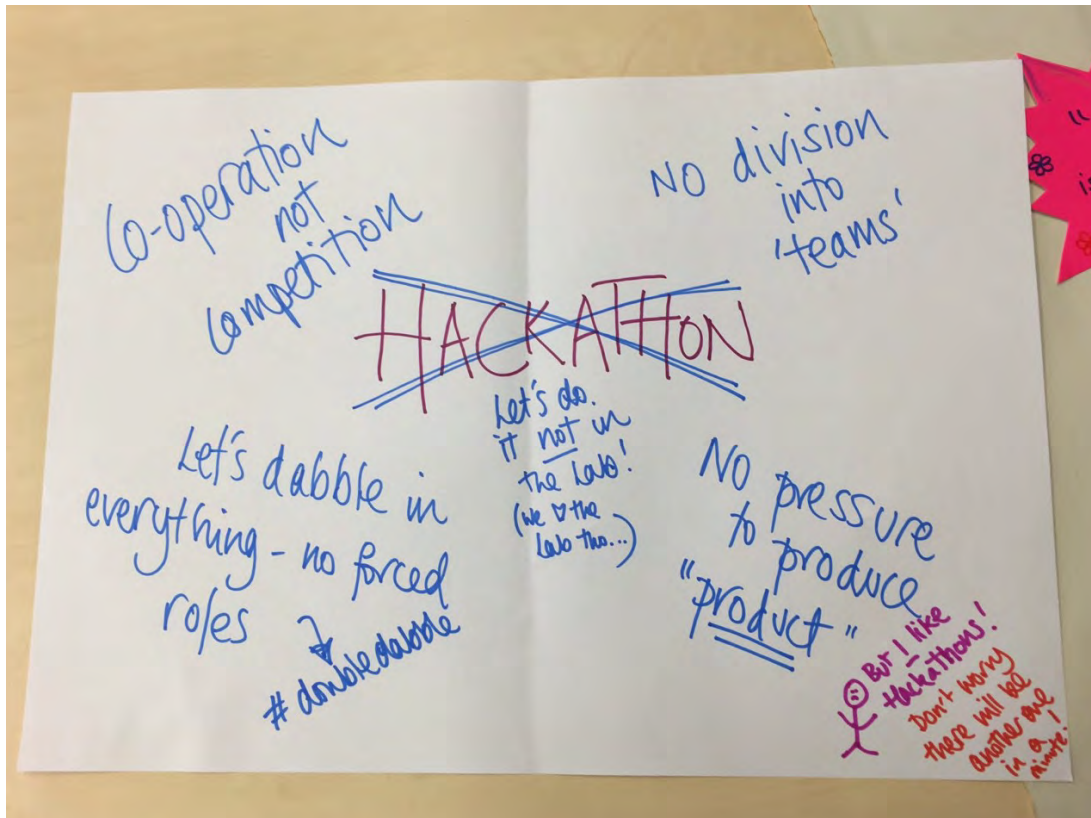 Co-operation
not
competition
No division
into
'teams'
HACKATHON
Let's do
it not in
the Lab!
(we ♡ the
Lab tho...)
Let's dabble in
everything - no forced
roles
#doubledabble
No pressure
to produce
"product"
But I like
Hackathons!
Don't worry
there will be
another one
in a
minute!